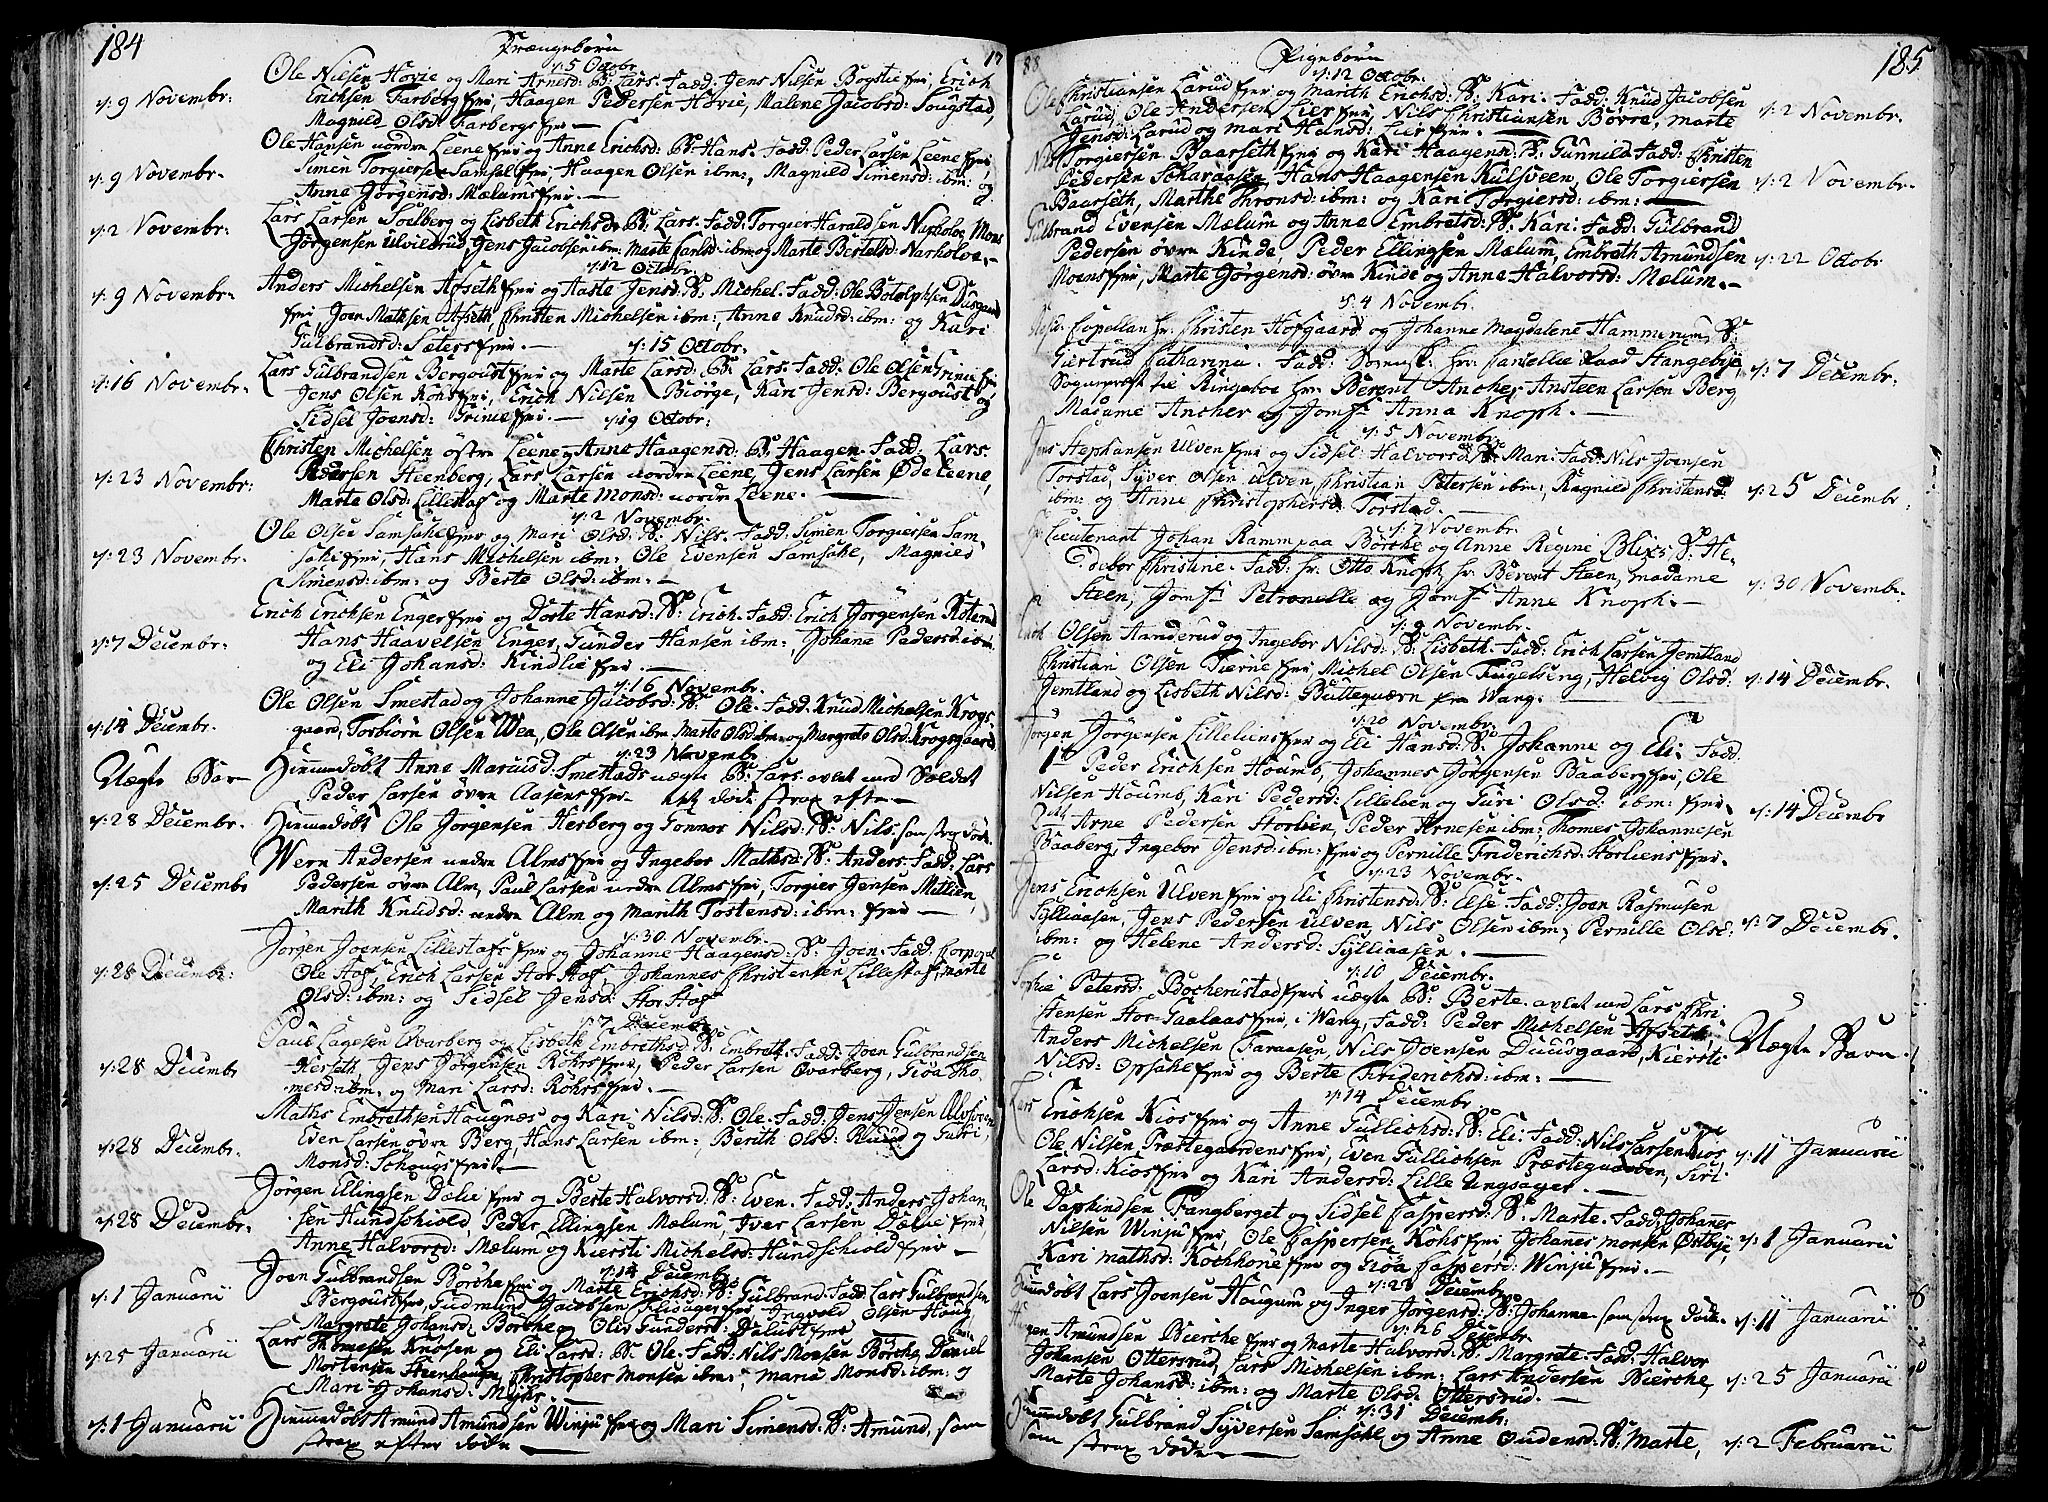 184
Drængebørn
17
d: 5 Octobr
d: 9 Novembr: Ole Nilsen Hovie og Mari Arnesd: B: Lars. Fadd: Jens Nilsen Bogstie fier, Erich
Erichsen Farberg fier, Haagen Pedersen Hovie, Malene Jacobsd: Sougstad,
Magnild Olsd: Farbergsfier.
d: 9 Novembr. Ole Hansen nordre Leene fier og Anne Erichsd: B: Hans. Fadd: Peder Larsen Leene fier,
Simen Torgiersen Samsal fier, Haagen Olsen ibm:, Magnild Simensd: ibm: og
Anne Jørgensd: Mælumsfier.
d: 2 Novembr: Lars Larsen Soelberg og Lisbeth Erichsd: B: Lars. Fadd: Torgier Haraldsen Narholve, Mons
Jørgensen Ulvildrud, Jens Jacobsen ibm: Marte Larsd: ibm: og Marte Bertelsd: Narholve.
d: 12 Octobr
d: 9 Novembr. Anders Michelsen Afseth fier og Aaste Jensd: B: Michel. Fadd: Ole Botolphsen Dusgaard
fier, Joen Mathsen Afseth, Christen Michelsen ibm:, Anne Knudsd: ibm: og Kari
Gulbrandsd: Sætersfier.
d: 15 Octobr.
d: 16 Novembr. Lars Gulbrandsen Bergoust fier og Marte Larsd: B: Lars. Fadd: Ole Olsen Grime fier
Jens Olsen Kohsfier, Erich Nilsen Biørge, Kari Jensd: Bergoust og
Sidsel Joensd: Grime fier.
d: 19 Octobr:
d: 23 Novembr: Christen Michelsen østre Leene og Anne Haagensd: B: Haagen. Fadd: Lars
Pedersen Steenberg, Lars Larsen nordre Leene, Jens Larsen Øde Leene,
Marte Olsd: Lillestaf og Marte Monsd: nordre Leene.
d: 2 Novembr:
d: 23 Novembr. Ole Olsen Samsahl fier og Mari Olsd: B: Nils. Fadd: Simen Torgiersen Sam-
sahl fier, Hans Michelsen ibm: Ole Evensen Samsahl, Magnild
Simensd: ibm: og Berte Olsd: ibm.
d: 7 Decembr. Erich Erichsen Enger fier og Dorte Hansd: B: Erich. Fadd: Erich Jørgensen
Hans Haavelsen Enger, Gunder Hansen ibm:, Johane Pedersd: ibm
og Eli Johansd: Kindlie fier.
d: 16 Novembr.
d: 14 Decembr. Ole Olsen Smestad og Johanne Jacobsd: B: Ole. Fadd: Knud Michelsen Krogs
gaard, Torbiørn Olsen Wea, Ole Olsen ibm: Marte Olsd: ibm: og Margrete Olsd: Krogsgaard.
d: 23 Novembr
Uægte Bar- Hiemmedøbt Anne Marcusd: Smestads uægte B: Lars. avlet med Soldat
Peder Larsen øvre Aasens fier. døde strax efter.
d: 28 Decembr. Hiemmedøbt Ole Jørgensen Herberg og Gonnor Nilsd: B: Nils som strax døde
d: 25 Decembr Wern Andersen nedre Alms fier og Ingebor Mathsd: B: Anders. Fadd: Lars
Pedersen øvre Alm, Paul Larsen nedre Alms fier, Torgier Jensen Mælien,
Marith Knudsd: nedre Alm og Marith Tostensd: ibm: fier
d: 30 Novembr.
d: 28 Decembr: Jørgen Joensen Lillestafs fier og Johanne Haagensd: B: Joen. Fadd: Corporal
Ole Staf, Erich Larsen Stor Staf, Johannes Christensen Lillestaf, Marte
Olsd: ibm: og Sidsel Jensd: Stor Staf.
d: 7 Decembr
d: 28 Decembr Paul Lagesen Qvarberg og Lisbeth Embrethsd: B: Embreth. Fadd: Joen Gulbrandsen
Herseth, Jens Jørgensen Røhrs fier, Peder Larsen Qvarberg, Gioa Tho-
mesd: ibm: og Mari Larsd: Røhrs fier.
d: 28 Decembr. Maths Embrethsen Hougnæs og Kari Nilsd: B: Ole. Fadd: Jens Jensen
Even Larsen øvre Berg, Hans Larsen ibm:, Berith Olsd: Rüüd og Guri
Monsd: Schougs fier.
d: 28 Decembr. Jørgen Ellingsen Dælie fier og Berte Halvorsd: B: Even. Fadd: Anders Johan-
sen Hundschiold, Peder Ellingsen Mælum, Iver Larsen Dælie fier,
Anne Halvorsd: Mælum og Kiersti Michelsd: Hundschiold fier
d: 14 Decembr.
d: 1 Januarii Joen Gulbrandsen Børche fier og Marte Erichsd: B: Gulbrand. Fadd: Lars Gulbrandsen
Bergoust fier, Gudmund Jacobsen Flidager fier, Ingvold Olsen Houg
Margrete Johansd: Børche og Oliv Gundersd: Dalust fier
d: 25 Januarii Lars Thomesen Knosen og Eli Larsd: B: Ole. Fadd: Nils Monsen Børche, Daniel
Mortensen Steenhougen, Christopher Monsen ibm:, Maria Monsd: ibm: og
Mari Johansd: Mohr
d: 1 Januarii Hiemmedøbt Amund Amundsen Winju fier og Mari Simensd: B: Amund, som
strax efter døde

88
Pigebørn
185
d: 12 Octobr:
Ole Christiansen Larud fier og Marith Erichsd: B: Kari. Fadd: Knud Jacobsen
Larud, Ole Andersen Lier fier, Nils Christiansen Bøvre, Marte d: 2 Novembr.
Jensd: Larud og Mari Hansd: Lier fier.
Nils Torgiersen Baarseth fier og Kari Haagensd: B: Gunnild. Fadd: Christen
Pedersen Scharaasen, Hans Haagensen Kulsveen, Ole Torgiersen d: 2 Novembr.
Baarseth, Marthe Thronsd: ibm: og Kari Torgiersd: ibm:
Gulbrand Evensen Mælum og Anne Embretsd: B: Kari. Fadd: Gulbrand
Pedersen øvre Kinde, Peder Ellingsen Mælum, Embreth Amundsen d: 22 Octobr
Moens fier, Marte Jørgensd: øvre Kinde og Anne Halvorsd: Mælum.
d: 4 Novembr.
Capellan hr: Christen Hofgaard og Johanne Magdalene Hammerum, B:
Giertrud Catharina. Fadd: hr: Stangebye, d: 7 Decembr.
Sognepræst til Ringeboe hr: Berent Ancher, Ansteen Larsen Berg,
Madame Ancher og Jomf: Anna Knoph.
d: 5 Novembr
Jens Stephansen Ulven fier og Sidsel Halvorsd: B: Mari. Fadd: Nils Joensen
Torstad, Syver Olsen Ulven, Christian Petersen ibm:, Ragnild Christensd: d: 25 Decembr
ibm: og Anne Christophersd: Torstad.
d: 7 Novembr
hr: Lieutenant Johan Børche og Anne Regine Blix: B: He-
debor Christine. Fadd: hr: Otto Knoph, hr: Berent Steen, Madame d: 30 Novembr.
Steen, Jomf: Petronelle og Jomf: Anne Knoph.
d: 9 Novembr.
Erich Olsen Aanderud og Ingebor Nilsd: B: Lisbeth. Fadd: Erich Larsen Jemtland
Christian Olsen Tierne fier, Michel Olsen Fugelseng, Helvig Olsd: d: 14 Decembr.
Jemtland og Lisbeth Nilsd: Buttequærn fra Wang.
d: 20 Novembr.
Jørgen Jørgensen Lilleliens fier og Eli Hansd: B: Johanne og Eli: Fadd:
1st Peder Erichsen Houmb, Johannes Jørgensen Baaberg fier, Ole
Nilsen Houmb, Kari Pedersd: Lillelien og Turi Olsd: ibm: fier. d: 14 Decembr
Arne Pedersen Storlien, Peder Arnesen ibm: Thomes Johannesen
Baaberg, Ingebor Jensd: ibm: fier og Pernille Friderichsd: Storliens fier.
d: 23 Novembr.
Jens Erichsen Ulven fier og Eli Christensd: B: Else. Fadd: Joen Rasmusen
Sylliaasen, Jens Pedersen Ulven, Nils Olsen ibm, Pernille Olsd: d: 7 Decembr.
ibm: og Helene Andersd: Sylliaasen.
d: 10 Decembr.
Sophie Petersd: fier uægte B: Berte. avlet med Lars Chri-
stensen Stor-Gaalaas fier, i Wang, Fadd: Peder Michelsen Afseth, Uægte Barn
Anders Michelsen Faraasen, Nils Joensen Duusgaard, Kiersti
Nilsd: Opsahl fier og Berte Friderichsd: ibm:
d: 14 Decembr
Lars Erichsen Kios fier og Anne Gullichsd: B: Eli. Fadd: Nils Larsen Kios
Ole Nilsen Præstegaardens fier, Even Gullichsen Præstegaarden, Siri d: 11 Januarii
Larsd: Kios fier og Kari Andersd: Lille Ungsager.
Ole Daphindsen Fangberget og Sidsel Caspersd: B: Marte. Fadd: Johannes
Nilsen Winju fier, Ole Caspersen Kohs fier, Johanes Monsen Østbye, d: 1 Januarii
Kari Mathsd: Kochhone fier og Gioa Caspersd: Winju fier.
d: 28 Decembr
Hiemmedøbt Lars Joensen Hougum og Inger Jørgensd: B: Johanne som strax døde. d: 11 Januarii
d: 26 Decembr
Haagen Amundsen Bierche fier og Marte Halvorsd: B: Margrete. Fadd: Halvor
Johansen Ottersrud, Lars Michelsen ibm: Lars Andersen Bierche,
Marte Johansd: ibm: og Marte Olsd: Ottersrud. d: 25 Januarii
d: 31 Decembr:
Hiemmedøbt Gulbrand Syversen Samsahl og Anne Oudensd: B: Marte,
som strax døde d: 2 Februarii